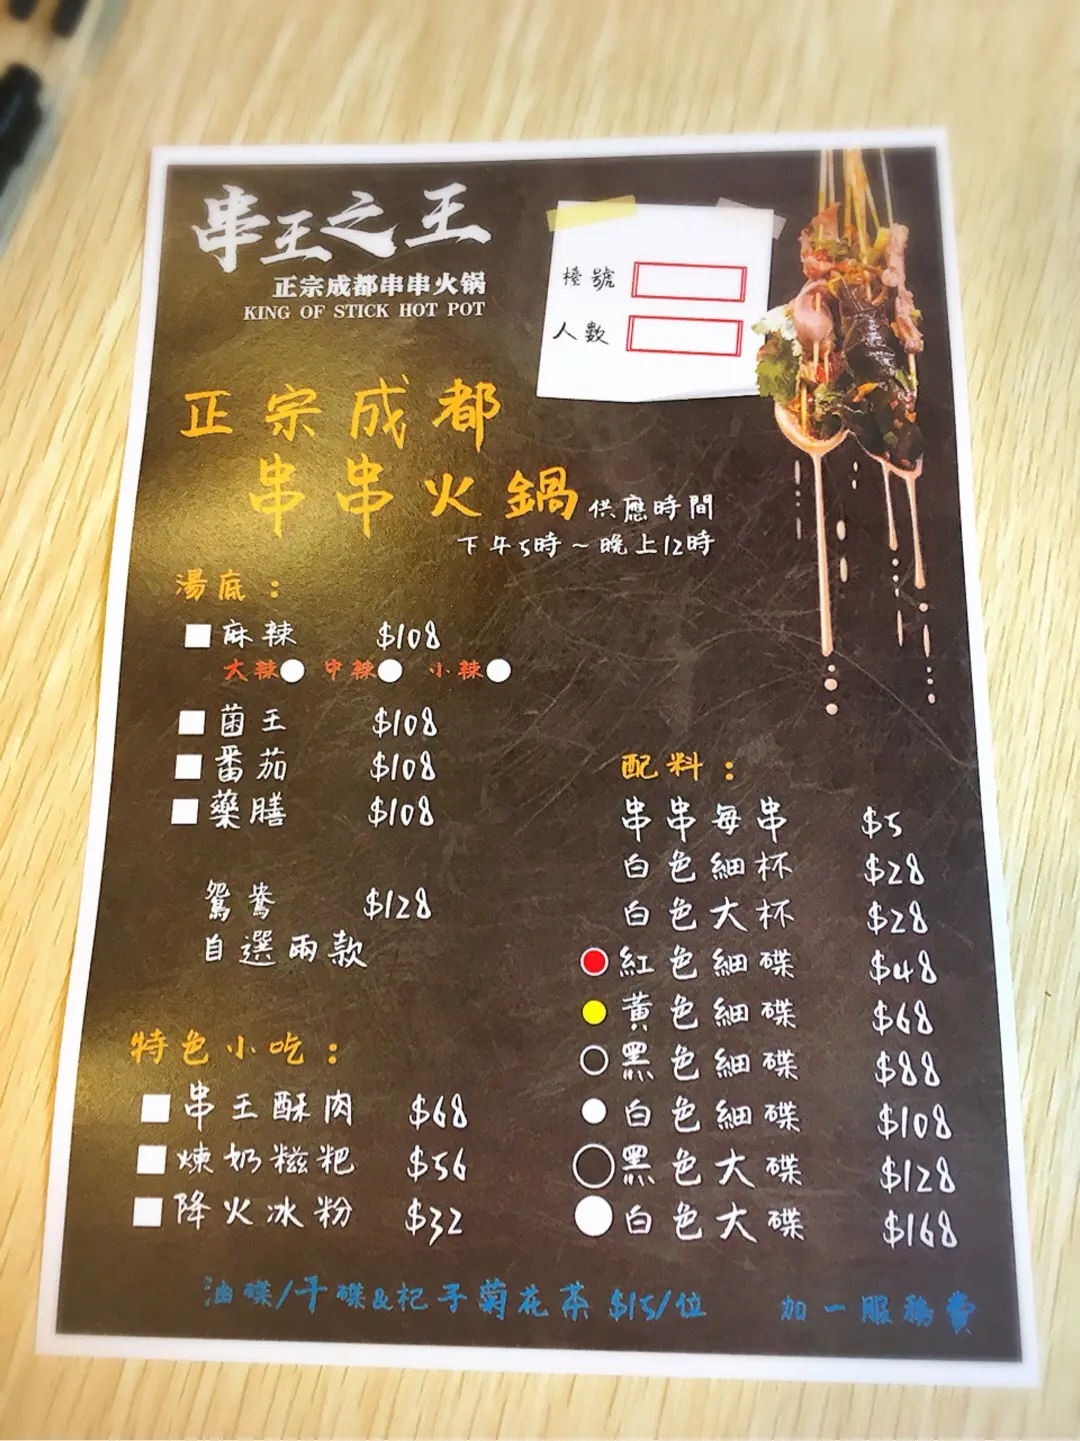 串王之王
正宗成都串串火锅
KING OF STICK HOT POT
檯號
人數
正宗成都
串串火鍋
供應時間
下午5時~晚上12時
湯底:
麻辣 $108
大辣 中辣 小辣
菌王 $108
番茄 $108
藥膳 $108
鴛鴦 $128
自選兩款
特色小吃:
串王酥肉 $68
煉奶糍粑 $56
降火冰粉 $32
配料:
串串每串 $5
白色細杯 $28
白色大杯 $28
紅色細碟 $48
黃色細碟 $68
黑色細碟 $88
白色細碟 $108
黑色大碟 $128
白色大碟 $168
油碟/干碟&杞子菊花茶 $15/位
加一服務費